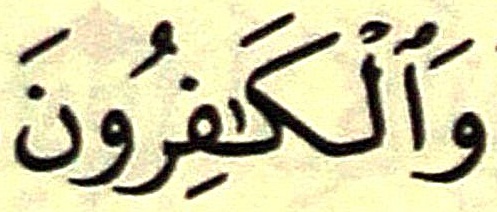 وَٱلْكَـٰفِرُونَ